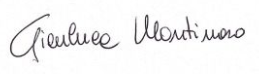 Gianluca Montinaro